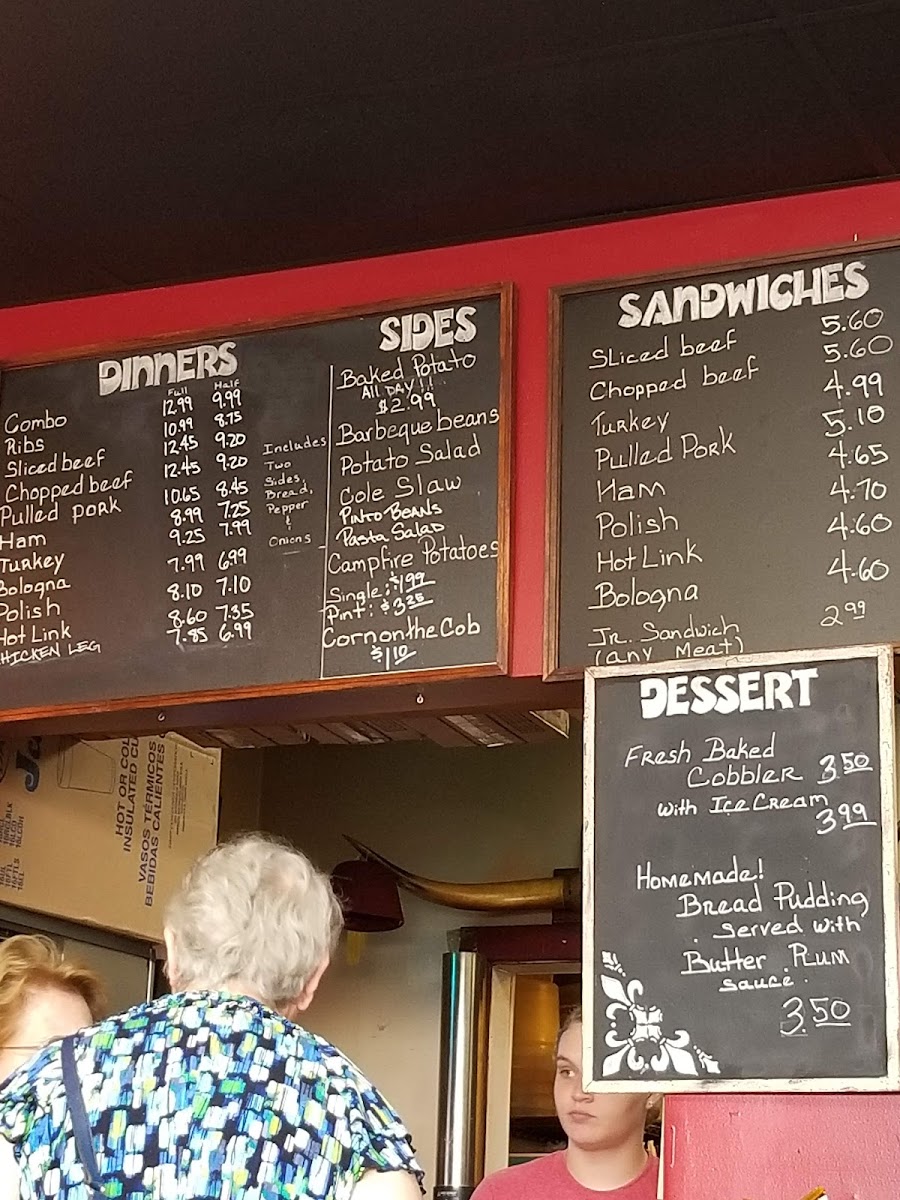 DINNERS
Full Half
Combo 12.99 9.99
Ribs 10.99 8.75
Sliced beef 12.45 9.20
Chopped beef 12.45 9.20
Pulled pork 10.65 8.45
Ham 8.99 7.25
Turkey 9.25 7.99
Bologna 7.99 6.99
Polish 8.10 7.10
Hot Link 8.60 7.35
CHICKEN LEG 7.85 6.99
Includes
Two
Sides,
Bread,
Pepper
&
Onions
SIDES
Baked Potato
ALL DAY!!
$2.99
Barbeque beans
Potato Salad
Cole Slaw
PINTO BEANS
Pasta Salad
Campfire Potatoes
Single: $1.99
Pint: $3.25
Corn on the Cob
$1.10
SANDWICHES
Sliced beef 5.60
Chopped beef 5.60
Turkey 4.99
Pulled Pork 5.10
Ham 4.65
Polish 4.70
Hot Link 4.60
Bologna 4.60
Jr. Sandwich 2.99
(any Meat)
DESSERT
Fresh Baked
Cobbler 3.50
with Ice Cream
3.99
Homemade!
Bread Pudding
served with
Butter Rum
sauce.
3.50
HOT OR COL
INSULATED CU
VASOS TÉRMICOS
BEBIDAS CALIENTES